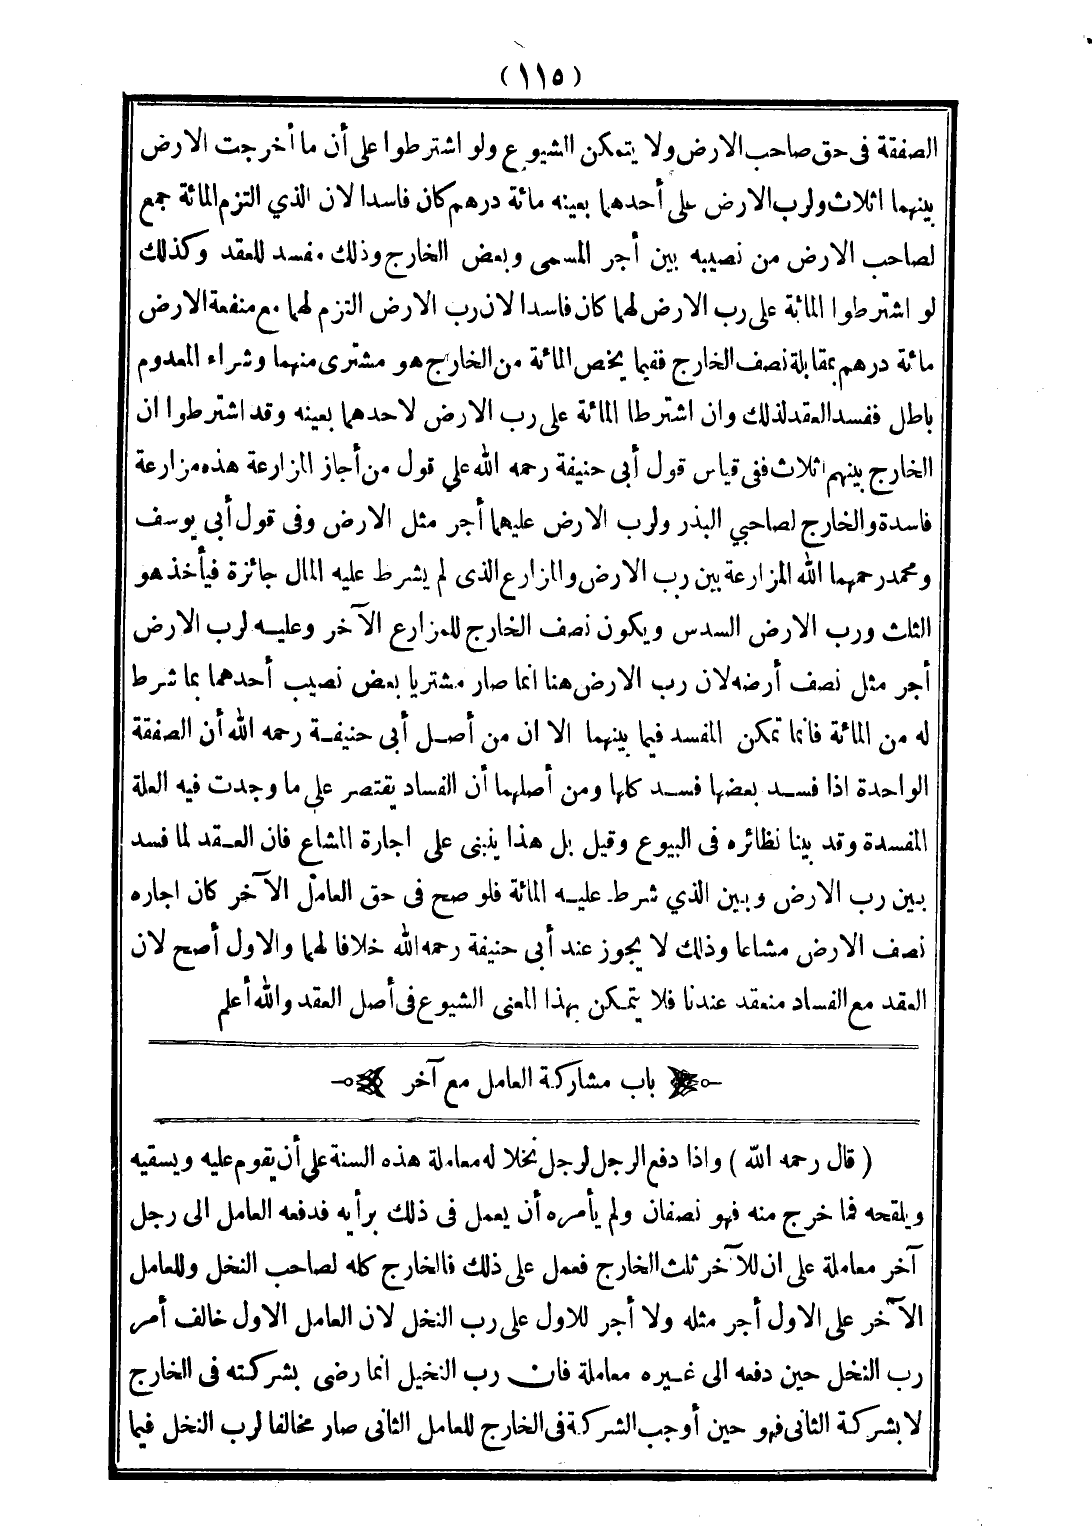 (١١٥)
الصفقة فى حق صاحب الارض ولا يتمكن الشيوع ولو اشترطوا على أن ما أخرجت الارض
بينهما اثلاث ولرب الارض على أحدهما بعينه مائة درهم كان فاسدا لان الذي التزم المائة جمع
لصاحب الارض من نصيبه بين أجر المسمى وبعض الخارج وذلك مفسد للعقد وكذلك
لو اشترطوا المائة على رب الارض لهما كان فاسدا لان رب الارض التزم لهما مع منفعة الارض
مائة درهم بمقابلة نصف الخارج ففيما يخص المائة من الخارج هو مشترى منهما وشراء المعدوم
باطل ففسد العقد لذلك وان اشترطا المائة على رب الارض لاحدهما بعينه وقد اشترطوا ان
الخارج بينهم اثلاث ففى قياس قول أبى حنيفة رحمه الله على قول من أجاز المزارعة هذه مزارعة
فاسدة والخارج لصاحبي البذر ولرب الارض عليهما أجر مثل الارض وفى قول أبي يوسف
ومحمد رحمهما الله المزارعة بين رب الارض والمزارع الذى لم يشرط عليه المال جائزة فيأخذ هو
الثلث ورب الارض السدس ويكون نصف الخارج للمزارع الآخر وعليه لرب الارض
أجر مثل نصف أرضه لان رب الارض هنا انما صار مشتريا بعض نصيب أحدهما بما شرط
له من المائة فانما تمكن المفسد فيما بينهما الا ان من أصل أبى حنيفة رحمه الله أن الصفقة
الواحدة اذا فسد بعضها فسد كلها ومن أصلهما أن الفساد يقتصر على ما وجدت فيه العلة
المفسدة وقد بينا نظائره فى البيوع وقيل بل هذا ينبنى على اجارة المشاع فان العقد لما فسد
بين رب الارض وبين الذي شرط عليه المائة فلو صح فى حق العامل الآخر كان اجاره
نصف الارض مشاعا وذلك لا يجوز عند أبى حنيفة رحمه الله خلافا لهما والاول أصح لان
العقد مع الفساد منعقد عندنا فلا يتمكن بهذا المعنى الشيوع فى أصل العقد والله أعلم
باب مشاركة العامل مع آخر
(قال رحمه الله) واذا دفع الرجل لرجل نخلا له معاملة هذه السنة على أن يقوم عليه ويسقيه
ويلقحه فما خرج منه فهو نصفان ولم يأمره أن يعمل فى ذلك برأيه فدفعه العامل الى رجل
آخر معاملة على ان للآخر ثلث الخارج فعمل على ذلك فالخارج كله لصاحب النخل وللعامل
الآخر على الاول أجر مثله ولا أجر للاول على رب النخل لان العامل الاول خالف أمر
رب النخل حين دفعه الى غيره معاملة فان رب النخيل انما رضى بشركته فى الخارج
لا بشركة الثانى فهو حين أوجب الشركة فى الخارج للعامل الثانى صار مخالفا لرب النخل فيما